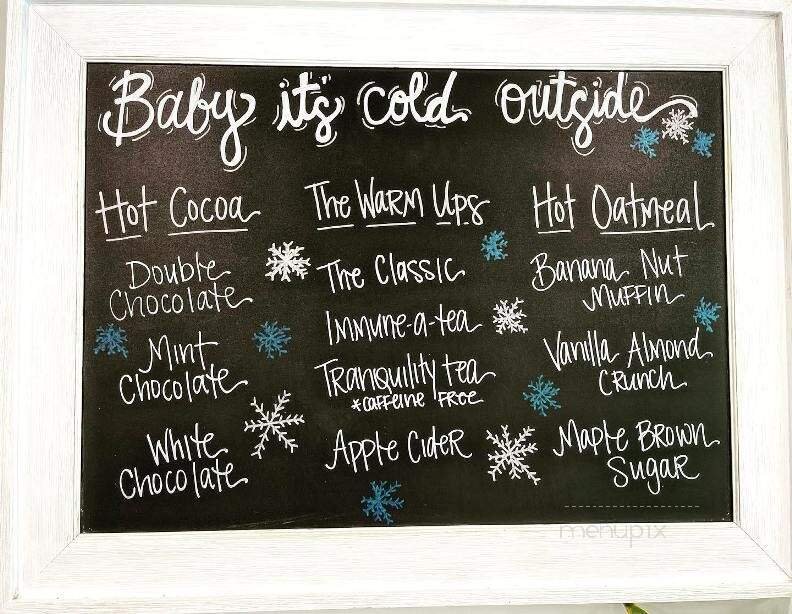 Baby its cold outside
Hot Cocoa
Double
Chocolate
Mint
Chocolate
White
Chocolate
The Warm Ups
The Classic
Immune-a-tea
Tranquility tea
*caffeine free
Apple Cider
Hot Oatmeal
Banana Nut
Muffin
Vanilla Almond
Crunch
Maple Brown
Sugar
menupix